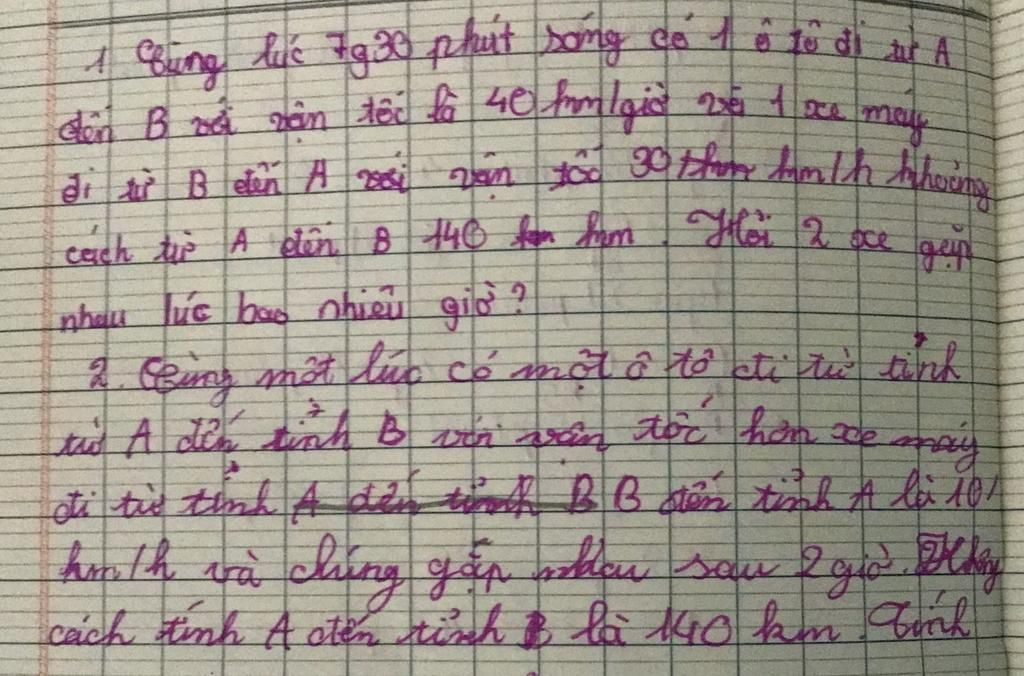 1 Cùng lúc 7g30 phút sáng có 1 ô tô đi từ A
đến B với vận tốc là 40 km/giờ và 1 xe máy
đi từ B đến A với vận tốc 30 km/h khoảng
cách từ A đến B 140 km. Hỏi 2 xe gặp
nhau lúc bao nhiêu giờ?
2. Cùng một lúc có một ô tô đi từ tỉnh
từ A đến tỉnh B với vận tốc hơn xe máy
đi từ tỉnh A đến tỉnh B B đến tỉnh A là 10
km/h và chúng gặp nhau sau 2 giờ.
cách tính A đến tỉnh B là 140 km. Tính